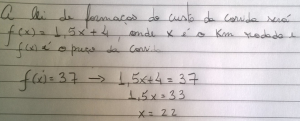 A lei de formação do custo da corrida será
f(x) = 1,5x + 4, onde x é o Km rodado e
f(x) é o preço da corrida
f(x) = 37 → 1,5x + 4 = 37
1,5x = 33
x = 22